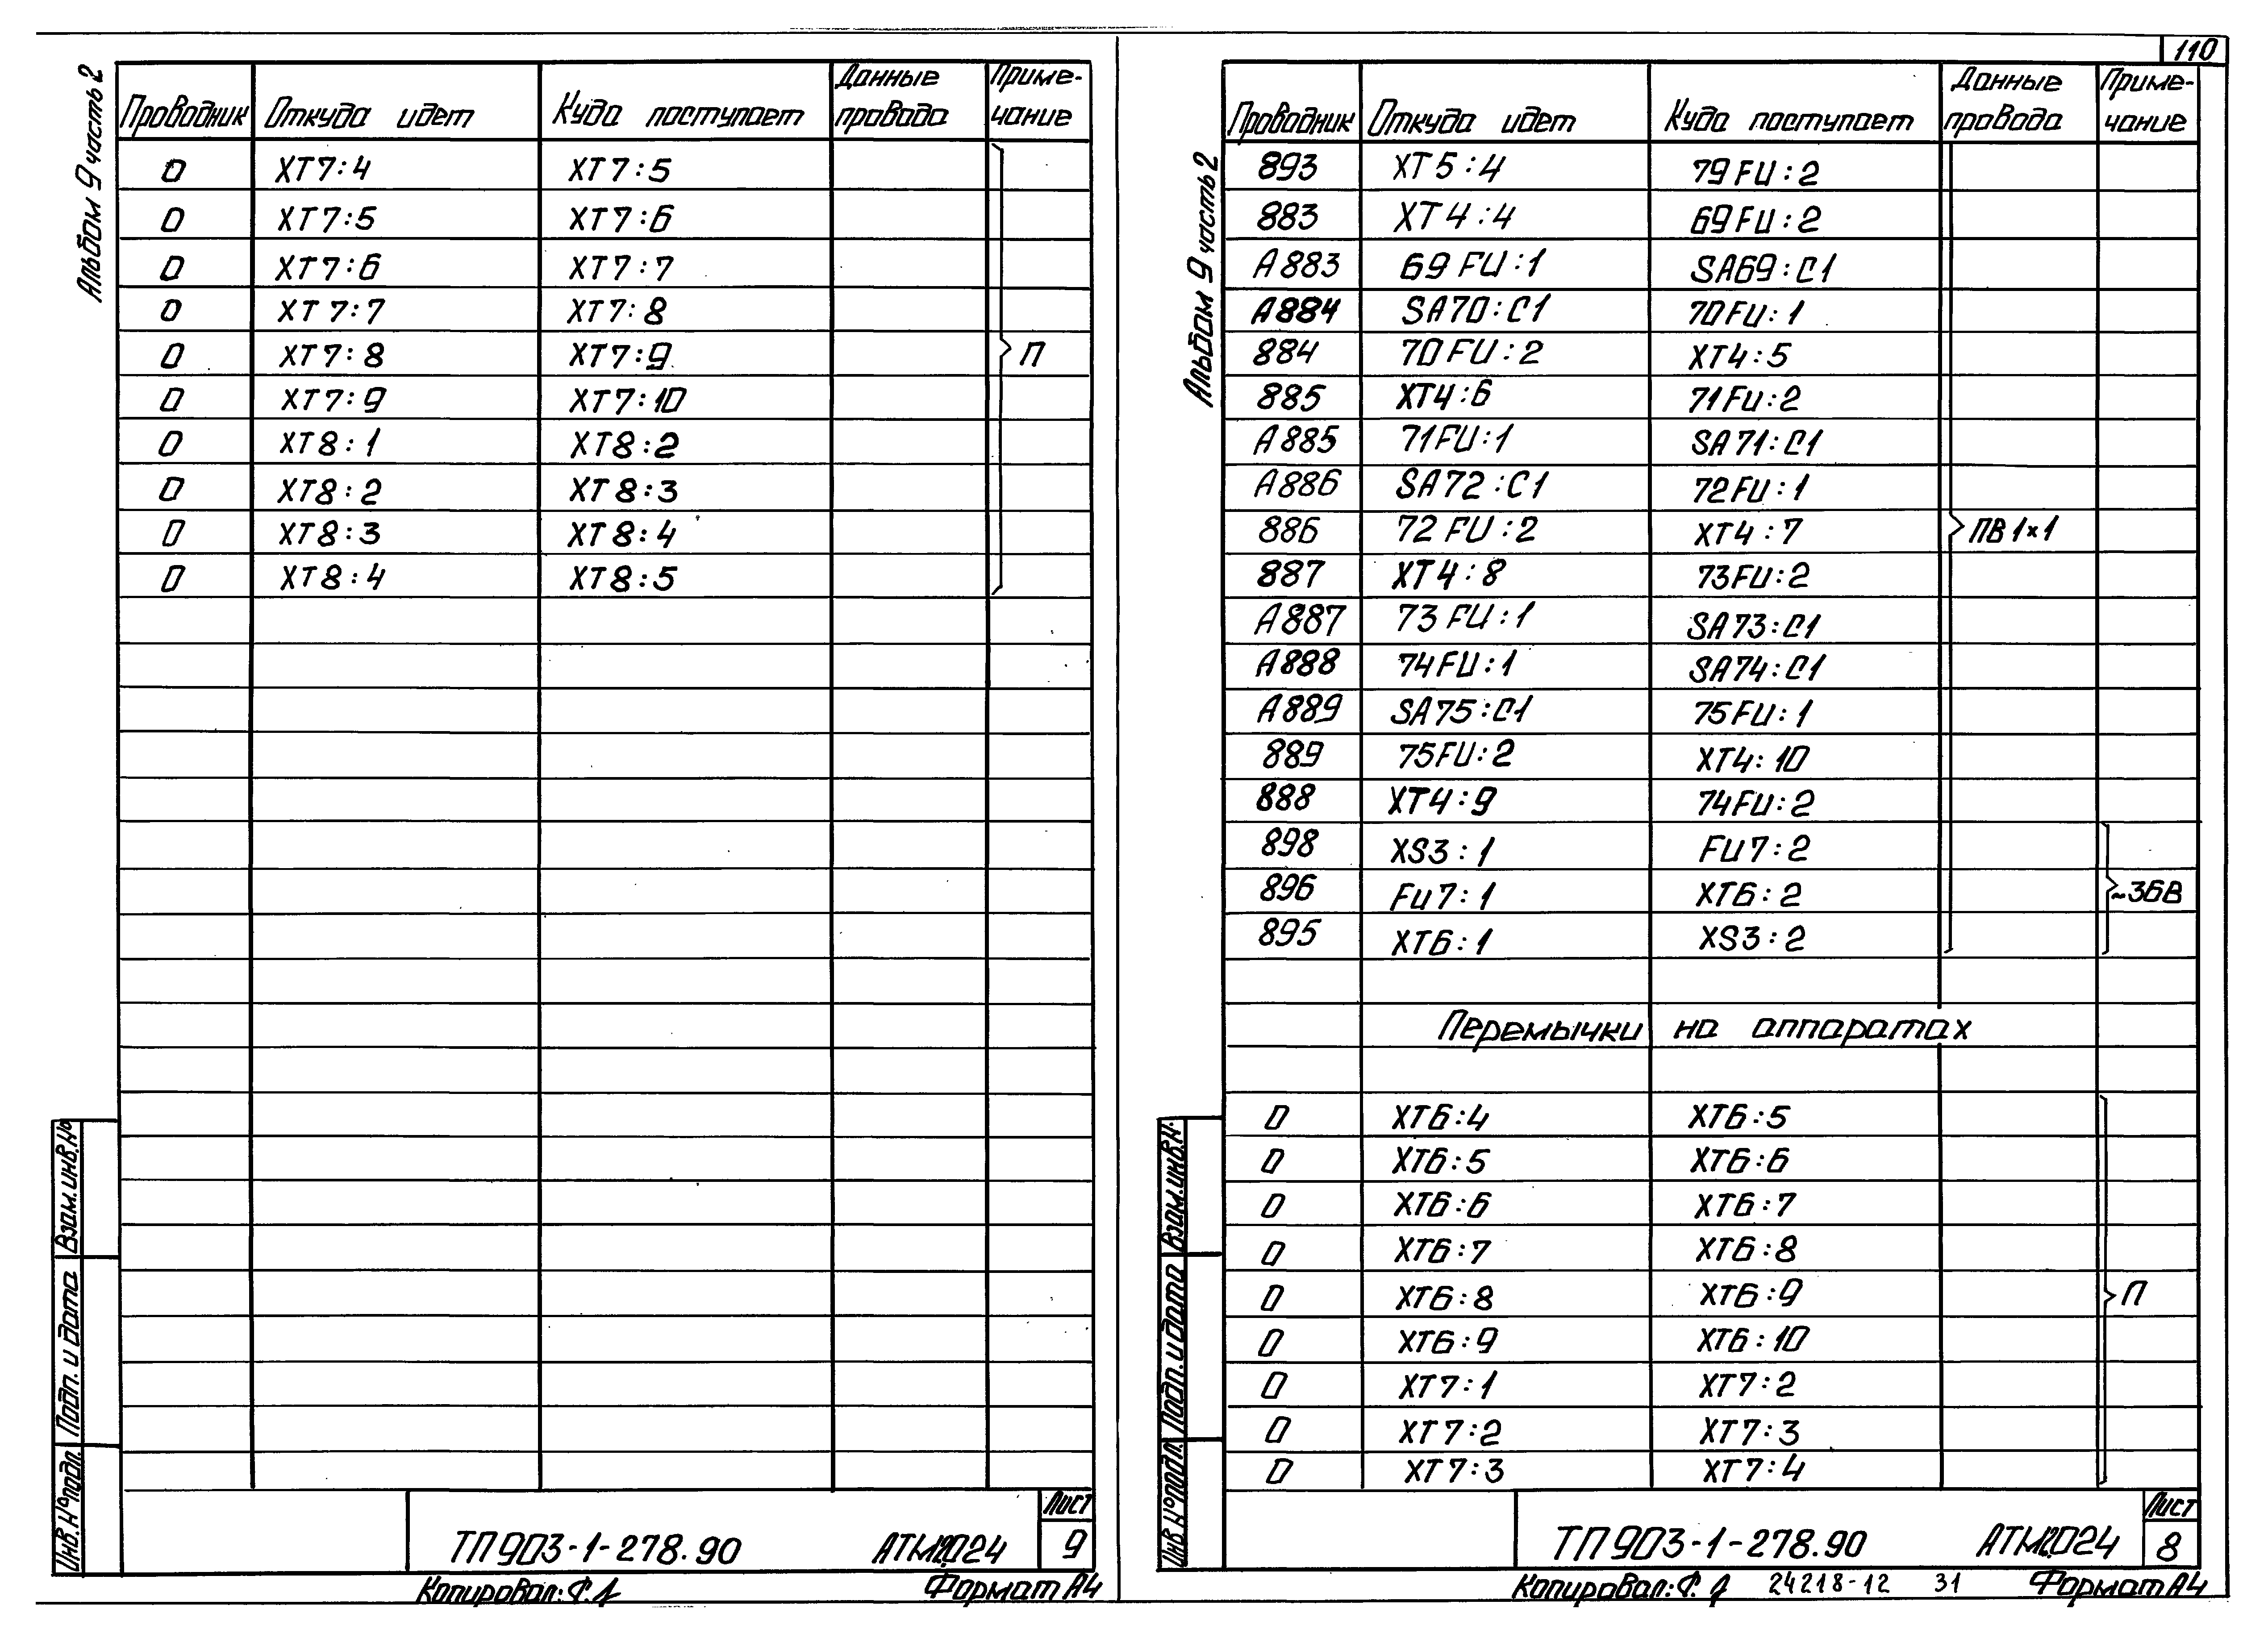 110
Альбом 9 часть 2
Проводник Откуда идет Куда поступает Данные провода Приме-чание
0 XT7:4 XT7:5
0 XT7:5 XT7:6
0 XT7:6 XT7:7
0 XT7:7 XT7:8
0 XT7:8 XT7:9 П
0 XT7:9 XT7:10
0 XT8:1 XT8:2
0 XT8:2 XT8:3
0 XT8:3 XT8:4
0 XT8:4 XT8:5
Взам.инв.№
Подп. и дата
Инв.№подл.
ТП903-1-278.90 Лист
9
Копировал: Формат А4
Альбом 9 часть 2
Проводник Откуда идет Куда поступает Данные провода Приме-чание
893 XT5:4 79FU:2
883 XT4:4 69FU:2
А883 69FU:1 SA69:C1
А884 SA70:C1 70FU:1
884 70FU:2 XT4:5
885 XT4:6 71FU:2
А885 71FU:1 SA71:C1
А886 SA72:C1 72FU:1
886 72FU:2 XT4:7 ПВ1×1
887 XT4:8 73FU:2
А887 73FU:1 SA73:C1
А888 74FU:1 SA74:C1
А889 SA75:C1 75FU:1
889 75FU:2 XT4:10
888 XT4:9 74FU:2
898 XS3:1 FU7:2
896 FU7:1 XT6:2 ~36В
895 XT6:1 XS3:2
Перемычки на аппаратах
0 XT6:4 XT6:5
0 XT6:5 XT6:6
0 XT6:6 XT6:7
0 XT6:7 XT6:8
0 XT6:8 XT6:9 П
0 XT6:9 XT6:10
0 XT7:1 XT7:2
0 XT7:2 XT7:3
0 XT7:3 XT7:4
Взам.инв.№
Подп. и дата
Инв.№подл.
ТП903-1-278.90 Лист
8
Копировал: 24218-12 31 Формат А4